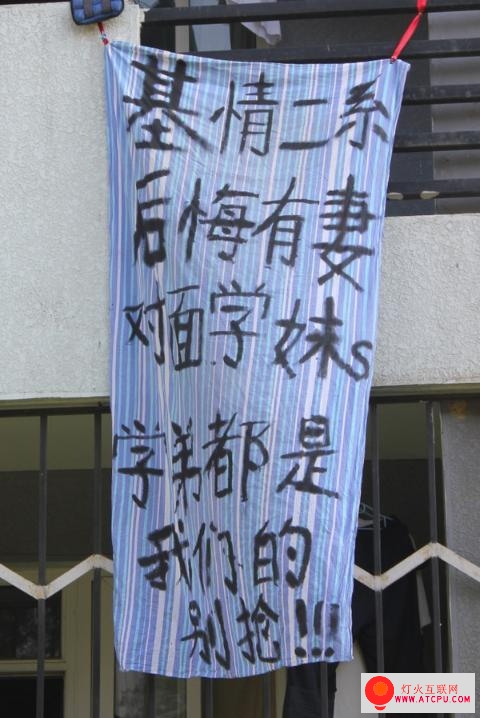 基情二系
后悔有妻
对面学妹s
学弟都是
我们的
别抢!!!
灯火互联网
WWW.ATCPU.COM